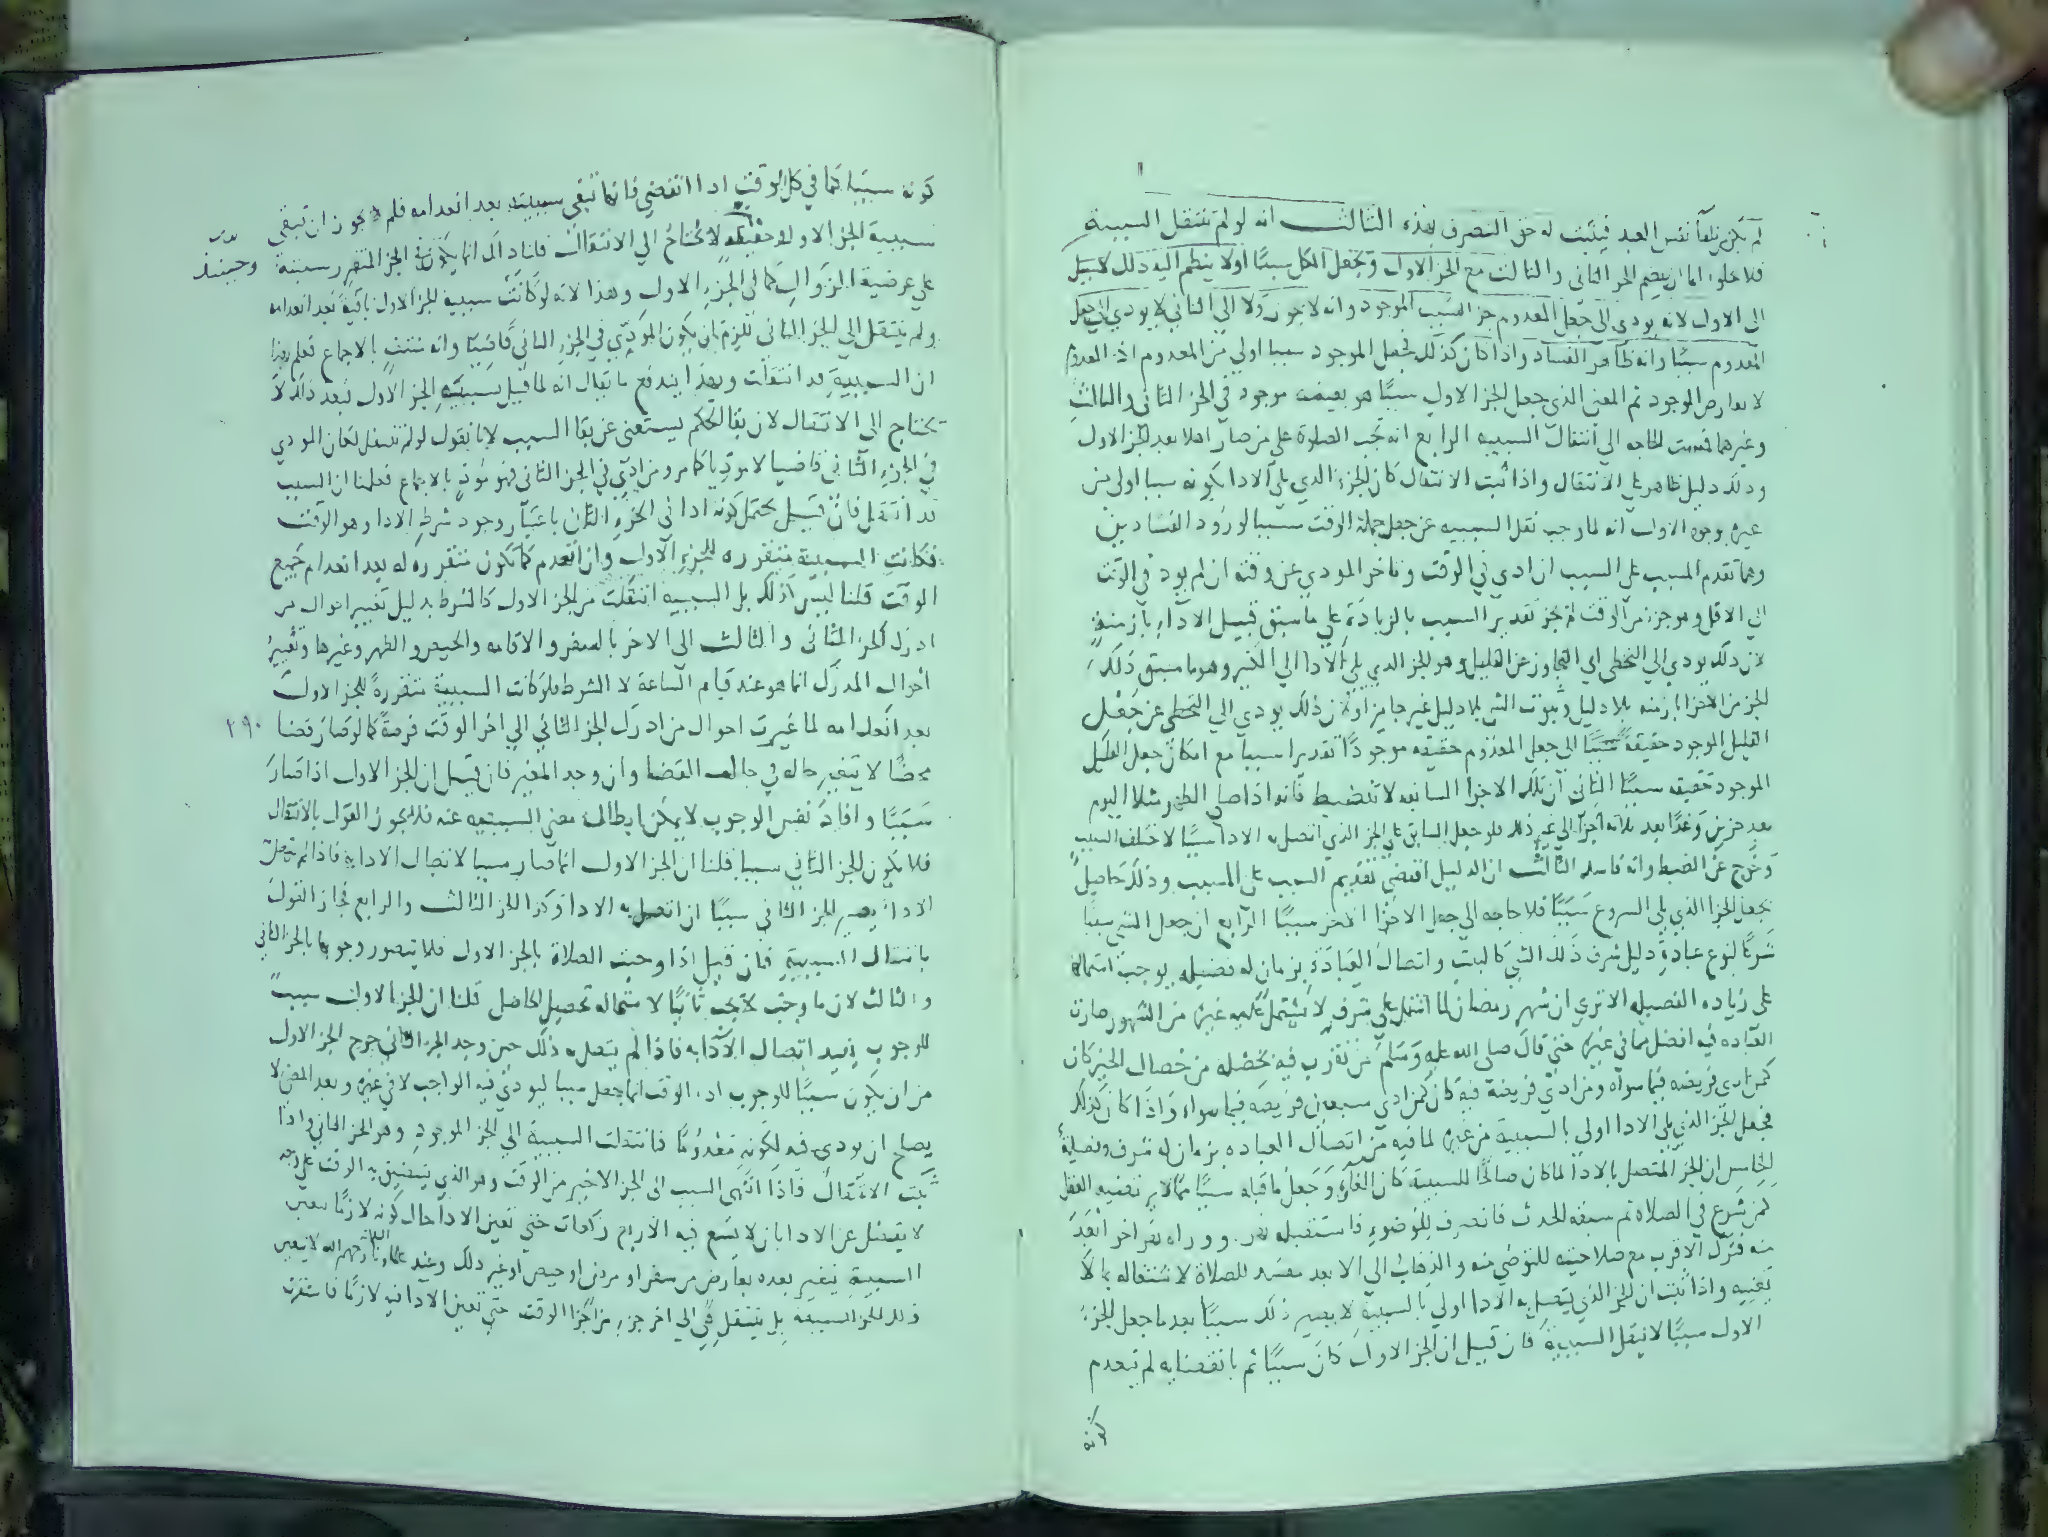 لم يكن خلفا نفس العبد فيثبت له حق التصرف بهذه الثالث انه لو لم تنتقل السببية
فلا يخلوا اما ان يضم الجز الثاني والثالث مع الجز الاول ويجعل الكل سببا اولا ينظم اليه ذلك لا سبيل
الى الاول لانه يودي الى جعل المعدوم جز السبب الموجود وانه لا يجوز ولا الى الثاني لانه يودي الى جعل
المعدوم سببا وانه ظاهر الفساد واذا كان كذلك فجعل الموجود سببا اولي من المعدوم اذ المعدوم
لا يعارض الموجود ثم المعنى الذي جعل الجز الاول سببا هو بعينه موجود في الجز الثاني والثالث
وغيرهما فمست الحاجه الى انتقال السببيه الرابع انه تجب الصلوة على من صار اهلا بعد الجز الاول
وذلك دليل ظاهر على الانتقال واذا ثبت الانتقال كان الجزء الذي يلي الادا بكونه سببا اولى من
غيره بوجوه الاول انه لما وجب نقل السببيه عن جعل جملة الوقت سببا لورود الفسادين
وهما تقدم المسبب على السبب ان ادى في الوقت وتاخر المودي عن وقته ان لم يود في الوقت
الى الاقل وهو جزء من الوقت لم يجز تقدير السبب بالزيادة على ما سبق قبيل الاداء بازمنة
لان ذلك يودي الى التخطي اي التجاوز عن القليل وهو الجز الذي يلي الادا الى الكثير وهو ما سبق ذلك
الجز من الاجزا بازمنه بلا دليل وثبوت الشي بلا دليل غير جايز اولان ذلك يودي الى التخطي عن جعل
القليل الموجود حقيقة سببا الى جعل المعدوم حقيقه موجودا تقديرا سببا مع امكان جعل القليل
الموجود حقيقه سببا الثاني ان تلك الاجزا السابقه لا تنضبط فانه اذا صلى الظهر مثلا اليوم
بعد جزين وغدا بعد ثلاثه اجزا الى غير ذلك فلو جعل السابق على الجز الذي اتصل به الادا سببا لا ختلف السبب
وخرج عن الضبط وانه فاسد الثالث ان الدليل اقتضى تقديم السبب على المسبب وذلك حاصل
بجعل الجزا الذي يلي الشروع سببا فلا حاجه الى جعل الاجزا الاخر سببا الرابع ان جعل الشي سببا
شرعا لنوع عبادة دليل شرف ذلك الشي كالبيت واتصال العبادة بزمان له فضيله يوجب اشتمالها
على زياده الفضيله الا ترى ان شهر رمضان لما اشتمل على شرف لا يشتمل عليه غيره من الشهور صارت
العباده فيه افضل مما في غيره حتى قال صلى الله عليه وسلم من تقرب فيه بخصله من خصال الخير كان
كمن ادى فريضه فيما سواه ومن ادى فريضة فيه كان كمن ادى سبعين فريضه فيما سواه واذا كان كذلك
فجعل الجز الذي يلي الادا اولى بالسببية من غيره لما فيه من اتصال العباده بزمان له شرف وفضيلة
الخامس ان الجز المتصل بالادا لما كان صالحا للسببية كان الغاؤه وجعل ما قبله سببا مما لا يرتضيه العقل
كمن شرع في الصلاة ثم سبقه الحدث فانصرف للوضوء فاستقبله نهر ووراه نهر اخر ابعد
منه فترك الاقرب مع صلاحيته للتوضي منه والذهاب الى الا بعد مفسد للصلاة لاشتغاله بما لا
يعنيه واذا ثبت ان الجز الذي يتصل به الادا اولى بالسببية لا يصير ذلك سببا بعد ما جعل الجزء
الاول سببا لا بنقل السببية فان قيل ان الجز الاول كان سببا ثم بانقضايه لم تعدم
كونه
كونه سببا كما في كل الوقت اذا انقضى فانما تبقى سببيته بعد انعدامه فلم لا يجوز ان تبقى
سببية الجز الاول حقيقة لا يحتاج الى الانتقال قلنا ذاك انما يكون في الجز المتقرر سببية وحينيذ
على عرضية الزوال كما الى الجزء الاول وهذا لانه لو كانت سببية الجز الاول باقية بعد انعدامه
ولم ينتقل الى الجز الثاني للزم ان يكون المودي في الجزء الثاني قاضيا وانه منتف بالاجماع فعلم بهذا
ان السببية قد انتقلت وبهذا يندفع ما يقال انه لما قيل سببية الجز الاول فبعد ذلك لا
يحتاج الى الانتقال لان بقا الحكم يستغنى عن بقا السبب لانا نقول لو لم تنتقل لكان المودي
في الجزء الثاني قاضيا لا موديا كما مر ومن ادى في الجز الثاني فهو مؤد بالاجماع فعلمنا ان السبب
قد انتقل فان قيل يحتمل كونه ادا في الجزء الثاني باعتبار وجود شرط الادا وهو الوقت
فكانت السببية متقرره للجزء الاول وان انعدم كما تكون متقرره له بعد انعدام جميع
الوقت قلنا ليس كذلك بل السببيه انتقلت من الجز الاول كالشرط بدليل تغيير احوال من
ادرك الجز الثاني والثالث الى الاخر بالسفر والاقامه والحيض والطهر وغيرها وتغيير
احوال المدرك انما هو عند قيام الساعة لا الشرط فلو كانت السببية متقررة للجز الاول
بعد انعدامه لما تغيرت احوال من ادرك الجز الثاني الى اخر الوقت فرصة كما لو صار قضا
٢٩٠
محضا لا يتغير حاله في حالة القضا وان وجد المغير فان قيل ان الجز الاول اذا صار
سببا وافاد نفس الوجوب لا يمكن ابطال معنى السببيه عنه فلا يجوز القول بالانتقال
فلا يكون الجز الثاني سببا قلنا ان الجز الاول انما صار سببا لاتصال الادا به فاذا لم يتصل
الادا يصير الجز الثاني سببا ان اتصل به الادا وكذا الجز الثالث والرابع فجاز القول
بانتقال السببية فان قيل اذا وجبت الصلاة بالجز الاول فلا يتصور وجوبها بالجز الثاني
والثالث لان ما وجب لا يجب ثانيا لاستحاله تحصيل الحاصل قلنا ان الجز الاول سبب
للوجوب بقيد اتصال الادا به فاذا لم يتصل به ذلك حين وجد الجز الثاني خرج الجز الاول
من ان يكون سببا للوجوب اذ الوقت انما جعل سببا ليودي فيه الواجب لا في غيره وبعد المضي لا
يصلح ان يودى فيه لكونه معدوما فانتقلت السببية الى الجز الموجود وهو الجز الثاني واذا
ثبت الانتقال فاذا انتهى السبب الى الجز الاخير من الوقت وهو الذي يتضيق به الوقت على وجه
لا يفضل عن الادا بان لا يسع فيه الا اربع ركعات حتى تعين الادا حال كونه لازما تعين
السببية فيغير بعده بعارض من سفر او مرض او حيض او غير ذلك وعند علماونا الثلاثة رحمهم الله لا يتعين
ذلك الجز للسببيه بل ينتقل الى اخر جزء من اجزا الوقت حتى تعين الادا فيه لازما فاستقرت